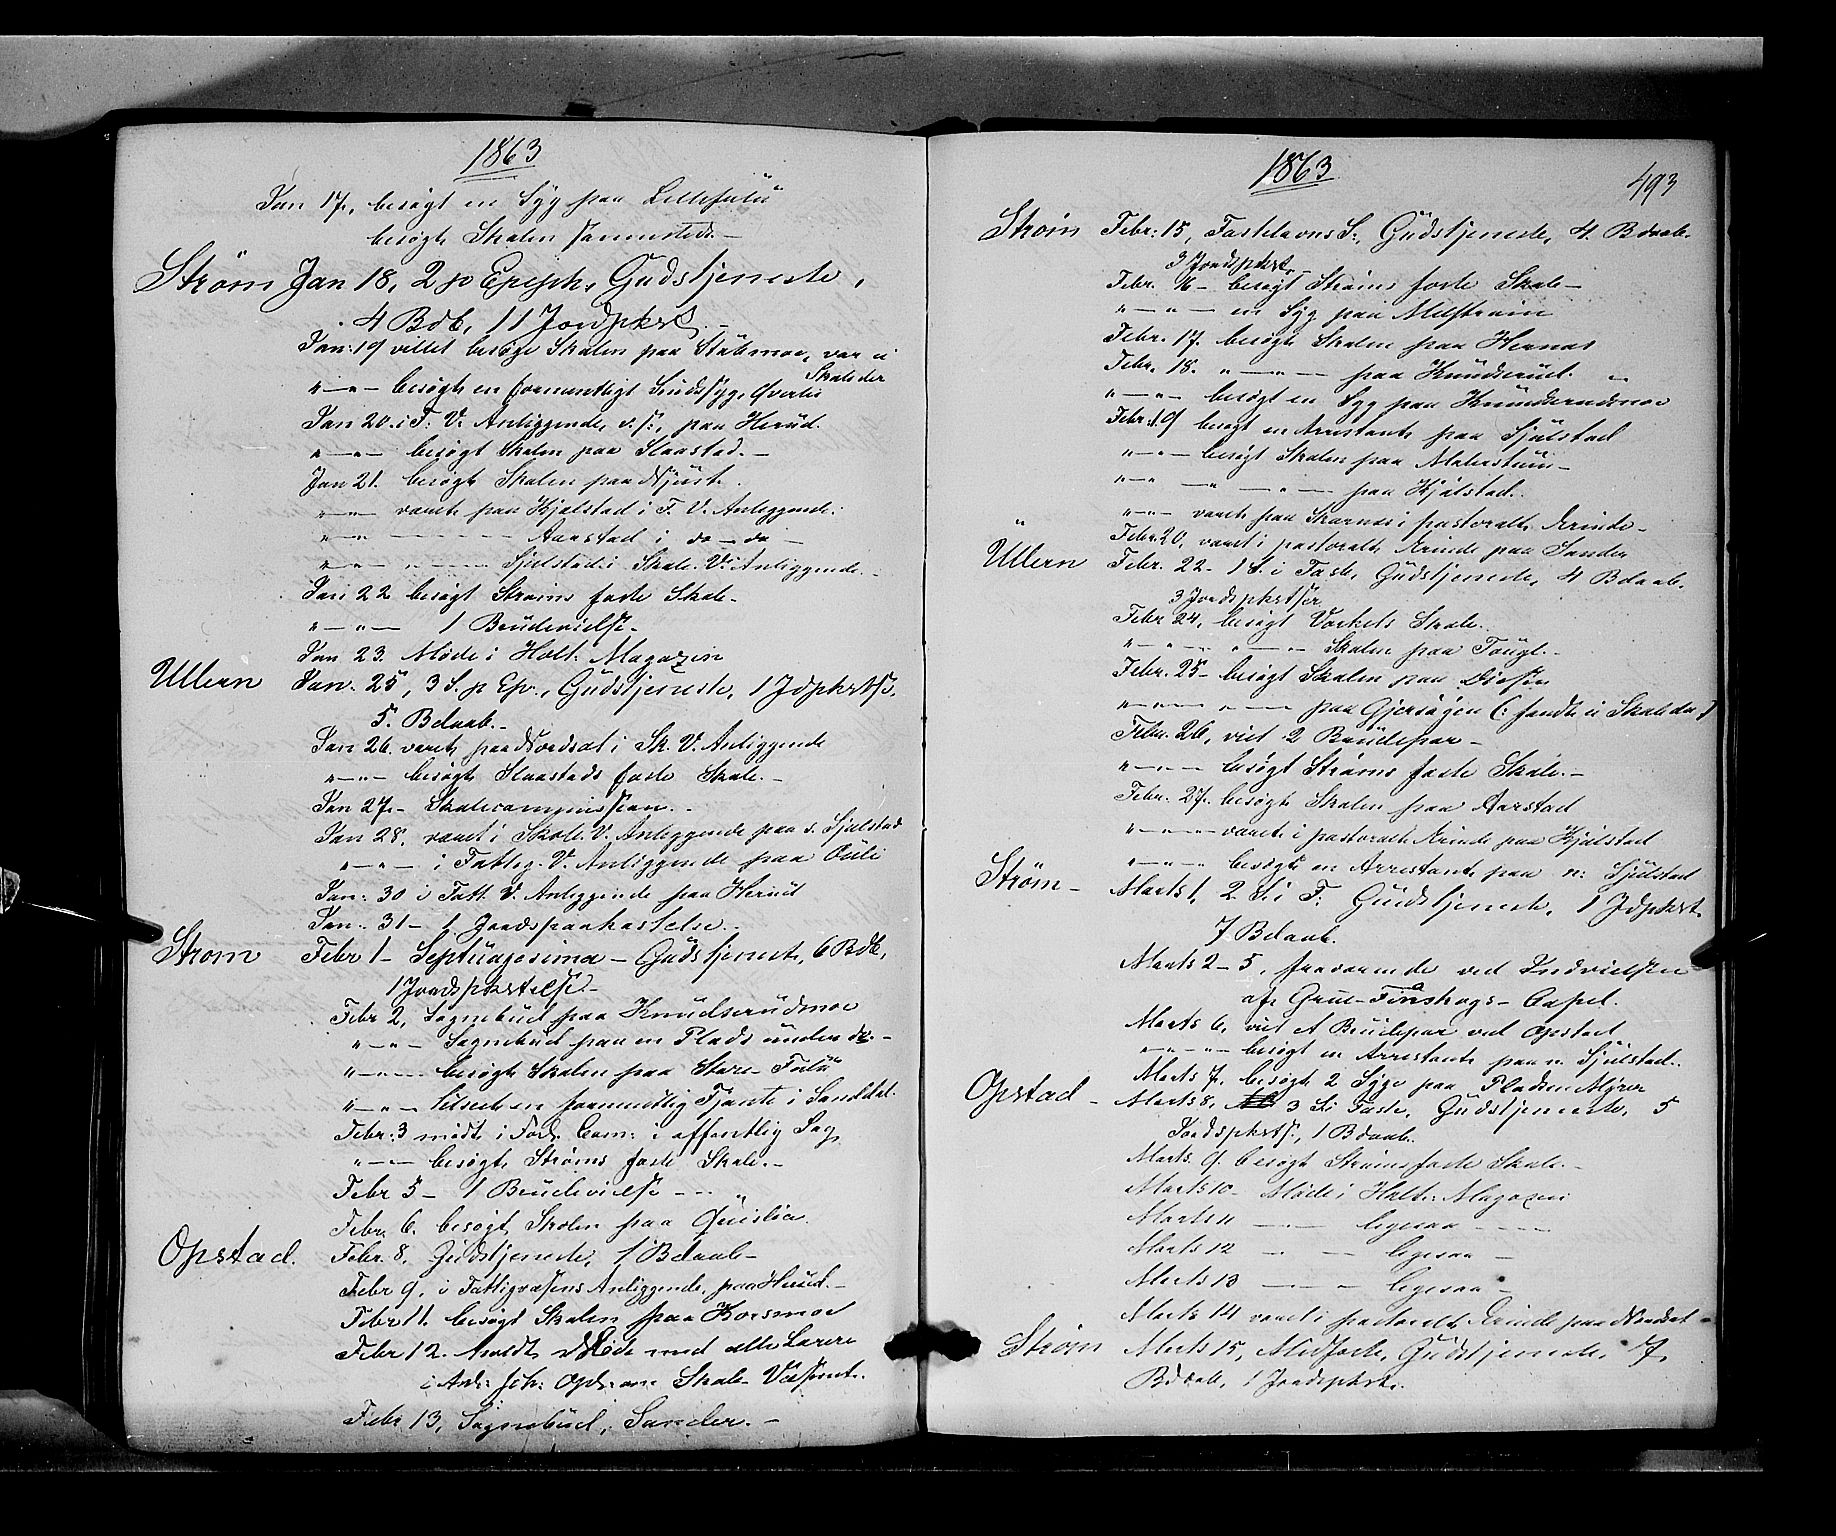 1863
Jan 17, besøgt en Syg paa Lillefulu
besøgt Skolen sammesteds. —
Strøm Jan 18, 2 p Epiph, Gudstjeneste,
4 Bdb, 11 Jordpkst. —
Jan: 19 villet besøge Skolen paa Stubmoe, var ei
Skole der
" — " — besøgt en formentligt Sindssyg, Øverlie
Jan 20. i F. V. Anliggende, s. s., paa Herud.
" — " — besøgt Skolen paa Slaastad. —
Jan 21. besøgt Skolen paa Njust.
" — " — været paa Kjølstad i F. V. Anliggende.
" — " — — — — Aarstad i do — do —
" — " — " — — Sjulstad i Skole. V. Anliggende. —
Jan 22 besøgt Strøms faste Skole —
" — " — 1 Brudevielse —
Jan 23. Møde i Holt. Magazin
Ullern Jan. 25, 3 S. p Ep., Gudstjeneste, 1 Jdpkstse,
5. Bdaab. —
Jan 26. været paa Nordset i Sk. V. Anliggende
" — " — besøgt Slaastads faste Skole. —
Jan 27. — Skolecommission. —
Jan 28, været i Skole. V. Anliggende paa s. Sjulstad
" — " — i Fattig. V. Anliggende paa Ouli
Jan: 30 i Fatt. V. Anliggende paa Herud
Jan: 31 — 1 Jordspaakastelse. —
Strøm Febr 1 — Septuagesima — Gudstjeneste, 6 Bdb,
1 Jordspkstelse —
Febr 2, Sognebud paa Knudserudmoe
" — " — Sognebud paa en Plads under do. —
" — " — besøgt Skolen paa Store Fulu
" — " — tilseet en formentlig Fjante i Sanddal.
Febr: 3 mødt i Forl. Com: i offentlig Sag,
" — " — besøgt Strøms faste Skole. —
Febr 5 — 1 Brudevielse — — "
Febr 6. besøgt Skolen paa Guislia.
Opstad. Febr. 8, Gudstjeneste, 1 Bdaab —
Febr 9, i Fattigvæsens Anliggende paa Herud. —
Febr 11. besøgt Skolen paa Korsmoe
Febr 12. holdt Møde med alle Lærere
i Anl: Skole Væsenet.
Febr 13, Sognebud, Sander. —
1863
493
Strøm Febr: 15, Fastelavns S:, Gudstjeneste, 4 Bdaab.
3 Jordspkst. —
Febr. 16 — besøgt Strøms faste Skole —
" — " — en Syg paa Melstrøm
Febr. 17. besøgt Skolen paa Hernes
Febr. 18. " — " — paa Knudserud.
" — " — besøgt en Syg paa Knudserudmoe
Febr. 19 besøgt en Arrestant paa Sjulstad
" — " — besøgt Skolen paa Malerstuen —
" — " — " — " — paa Kjølstad.
" — " — været paa Skarnes i pastoralt Ærinde —
Febr. 20, været i pastoralt Ærinde paa Sander
Ullern Febr. 22 — 1 S. i Faste, Gudstjeneste, 4 Bdaab,
3 Jordspkstser
Febr 24, besøgt Værkets Skole.
" — " — " — Skolen paa Tougl. —
Febr. 25 — besøgt Skolen paa Disen
" — " — " — paa Gjersøgen (: fandt ei Skole der :)
Febr. 26, viet 2 Brudepar —
" — " — besøgt Strøms faste Skole. —
Febr. 27. besøgt Skolen paa Aarstad
" — " — været i pastoralt Ærinde paa Kjølstad
" — " — besøgt en Arrestant paa n: Sjulstad
Strøm — Marts 1, 2 S. i F. Gudstjeneste, 1 Jdpkst.
7 Bdaab.
Marts 2 — 5, fraværende ved Indvielsen
af Grue-Finskogs-Capel.
Marts 6, viet et Brudepar ved Opstad
" — " — besøgt en Arrestant paa n. Sjulstad.
Marts 7, besøgt 2 Syge paa Pladsen Myrer
Opstad — Marts 8, 3 S. i Faste, Gudstjeneste, 5
Jordspkstse, 1 Bdaab.
Marts 9. besøgt Strøms faste Skole. —
Marts 10 — Møde i Holt. Magazin
Marts 11 — — ligesaa —
Marts 12 — — ligesaa —
Marts 13 — — ligesaa —
Marts 14 været i pastoralt Ærinde paa Nordset —
Strøm Marts 15, Midfaste, Gudstjeneste, 7
Bdaab, 1 Jordspkst.